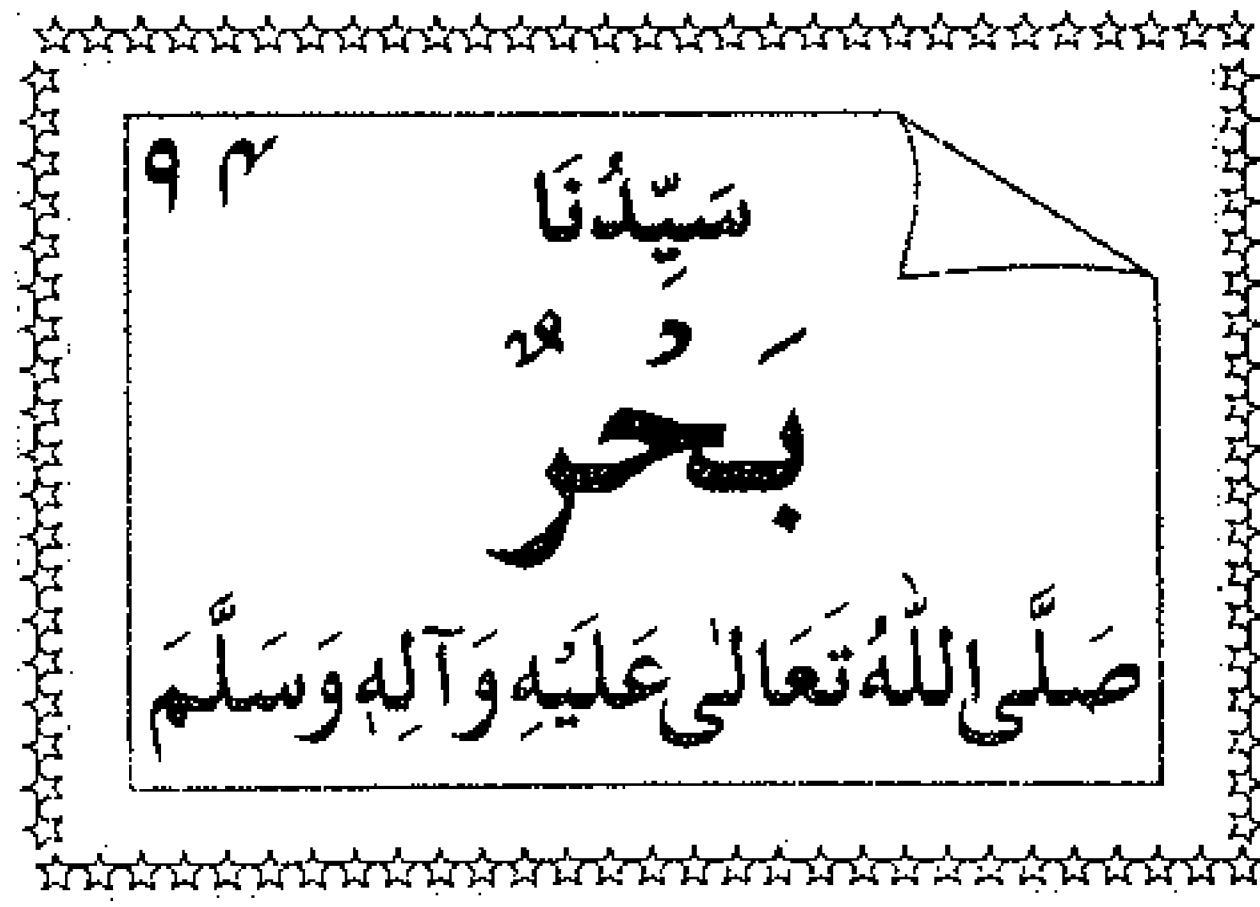 ۹۴
سَیِّدُنَا
بَحْرٌ
صَلَّی اللّٰهُ تَعَالٰی عَلَیْهِ وَآلِهٖ وَسَلَّمَ